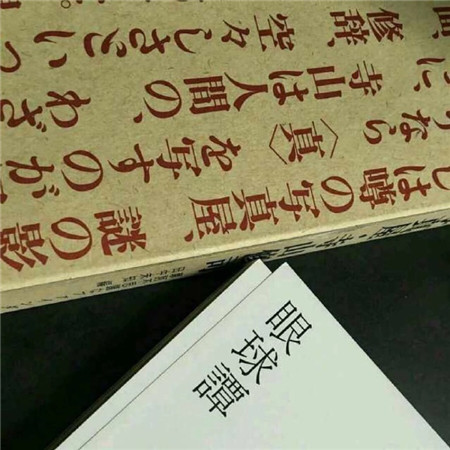 修辞、空々しさといっ
に、寺山は人間の、わざ
うなら〈真〉を写すのが
しは噂の写真屋、謎の影
眼球譚